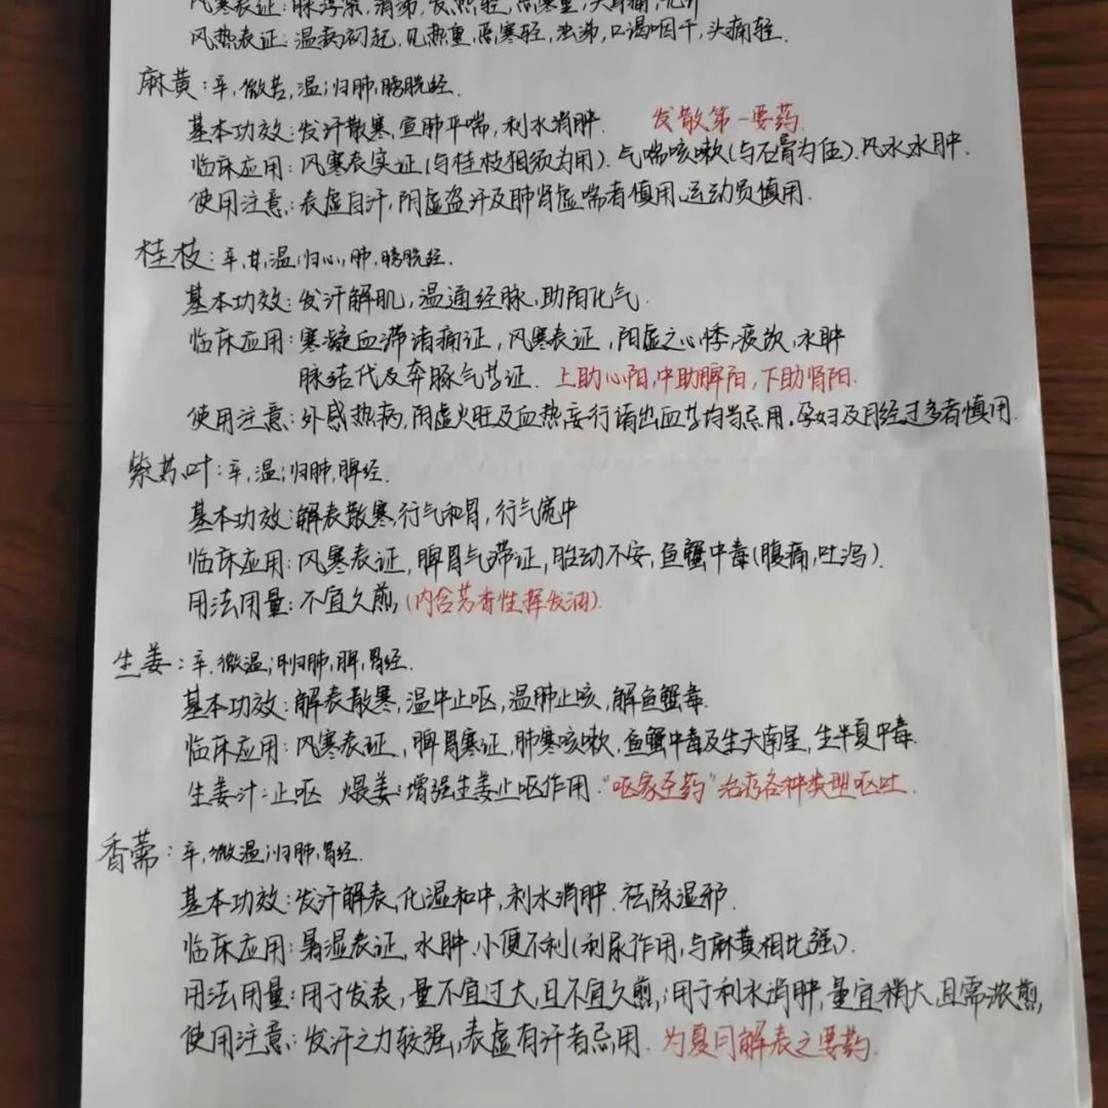 风寒表证：脉浮紧，清涕，发热轻，恶寒重，头身痛，无汗
风热表证：温病初起，见热重，恶寒轻，浊涕，口渴咽干，头痛轻.
麻黄：辛，微苦，温；归肺，膀胱经.
基本功效：发汗散寒，宣肺平喘，利水消肿. 发散第一要药.
临床应用：风寒表实证(与桂枝相须为用). 气喘咳嗽(与石膏为伍). 风水水肿.
使用注意：表虚自汗，阴虚盗汗及肺肾虚喘者慎用. 运动员慎用.
桂枝：辛，甘，温；归心，肺，膀胱经.
基本功效：发汗解肌，温通经脉，助阳化气.
临床应用：寒凝血滞诸痛证，风寒表证，阳虚之心悸，痰饮，水肿
脉结代及奔豚气等证. 上助心阳，中助脾阳，下助肾阳.
使用注意：外感热病，阴虚火旺及血热妄行诸出血等均当忌用，孕妇及月经过多者慎用.
紫苏叶：辛，温；归肺，脾经.
基本功效：解表散寒，行气和胃，行气宽中
临床应用：风寒表证，脾胃气滞证，胎动不安，鱼蟹中毒(腹痛，吐泻).
用法用量：不宜久煎，(内含芳香性挥发油).
生姜：辛，微温；归肺，脾，胃经.
基本功效：解表散寒，温中止呕，温肺止咳，解鱼蟹毒.
临床应用：风寒表证，脾胃寒证，肺寒咳嗽，鱼蟹中毒及生天南星，生半夏中毒.
生姜汁：止呕 煨姜：增强生姜止呕作用. “呕家圣药”治疗各种类型呕吐.
香薷：辛，微温；归肺，胃经.
基本功效：发汗解表，化湿和中，利水消肿. 祛除湿邪.
临床应用：暑湿表证，水肿. 小便不利(利尿作用，与麻黄相比强).
用法用量：用于发表，量不宜过大，且不宜久煎；用于利水消肿，量宜稍大，且需浓煎，
使用注意：发汗之力较强，表虚有汗者忌用. 为夏月解表之要药.